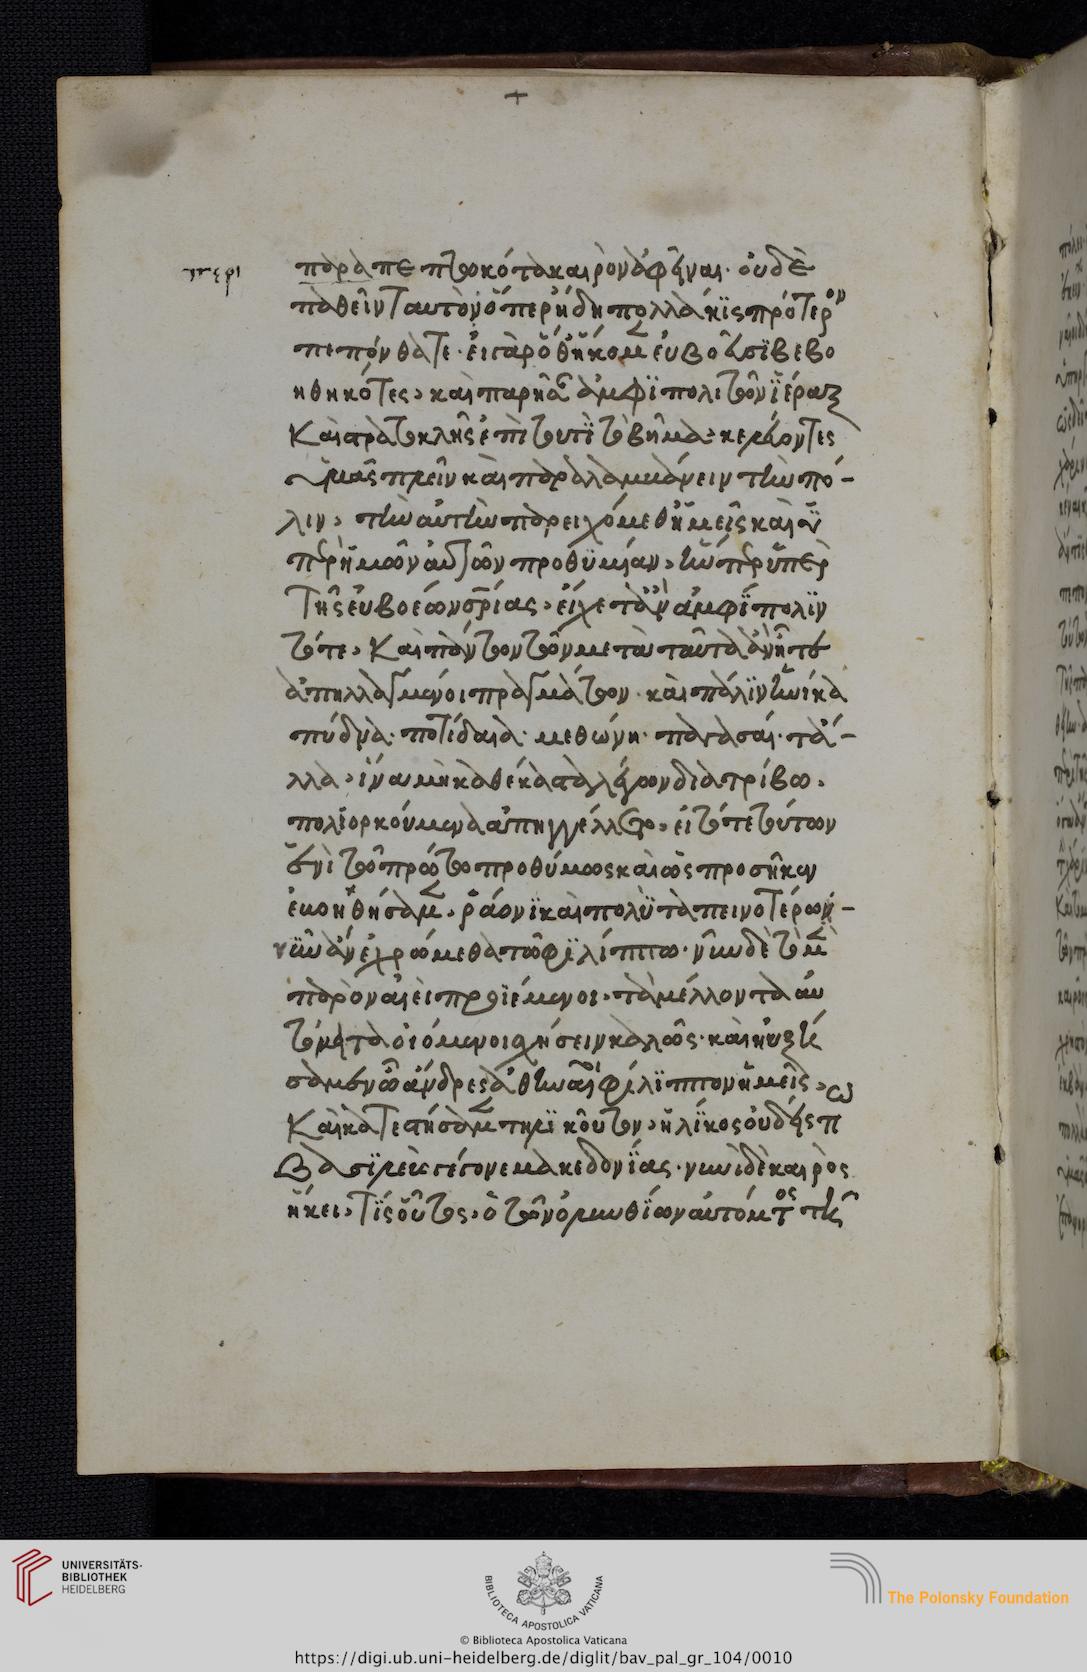 +
περι
παραπεπτωκότα καιρὸν ἀφεῖναι· οὐδὲ
παθεῖν ταυτὸν ὅπερ ἤδη πολλάκις πρότερον
πεπόνθατε· εἰ γὰρ ὅθ' ἥκομεν εὐβοεῦσι βεβο
ηθηκότες, καὶ παρῆσαν ἀμφιπολιτῶν ἱέραξ
καὶ στρατοκλῆς ἐπὶ τουτὶ τὸ βῆμα· κελεύοντες
ἡμᾶς πλεῖν καὶ παραλαμβάνειν τὴν πό-
λιν, τὴν αὐτὴν παρειχόμεθ' ἡμεῖς καὶ ὑ
πὲρ ἡμῶν αὐτῶν προθυμίαν, ἥνπερ ὑπὲρ
τῆς εὐβοέων σωτηρίας, εἴχετ' ἂν ἀμφίπολιν
τότε, καὶ πάντων τῶν μετὰ ταῦτα ἂν ἦτε
ἀπηλλαγμένοι πραγμάτων· καὶ πάλιν ἡνίκα
πύδνα· ποτίδαια· μεθώνη· παγασαί· τἄ-
λλα, ἵνα μὴ καθ' ἕκαστα λέγων διατρίβω,
πολιορκούμενα ἀπηγγέλλετο, εἰ τότε τούτων
ἑνὶ τῷ πρώτῳ προθύμως καὶ ὡς προσῆκεν
ἐβοηθήσαμεν, ῥάονι καὶ πολὺ ταπεινοτέρῳ -
νῦν ἂν ἐχρώμεθα τῷ φιλίππῳ· νῦν δὲ τὸ μὲν
παρὸν ἀεὶ προϊέμενοι, τὰ μέλλοντα αὐ
τόματα οἰόμενοι σχήσειν καλῶς· καὶ ηὐξή
σαμεν ὦ ἄνδρες ἀθηναῖοι φίλιππον ἡμεῖς,
καὶ κατεστήσαμεν τηλικοῦτον, ἡλίκος οὐδείς πω
βασιλεὺς γέγονε μακεδονίας· νυνὶ δὲ καιρὸς
ἥκει, τίς οὗτος, ὁ τῶν ὀλυνθίων αὐτόματος τῇ
UNIVERSITÄTS-
BIBLIOTHEK
HEIDELBERG
BIBLIOTECA APOSTOLICA VATICANA
The Polonsky Foundation
© Biblioteca Apostolica Vaticana
https://digi.ub.uni-heidelberg.de/diglit/bav_pal_gr_104/0010